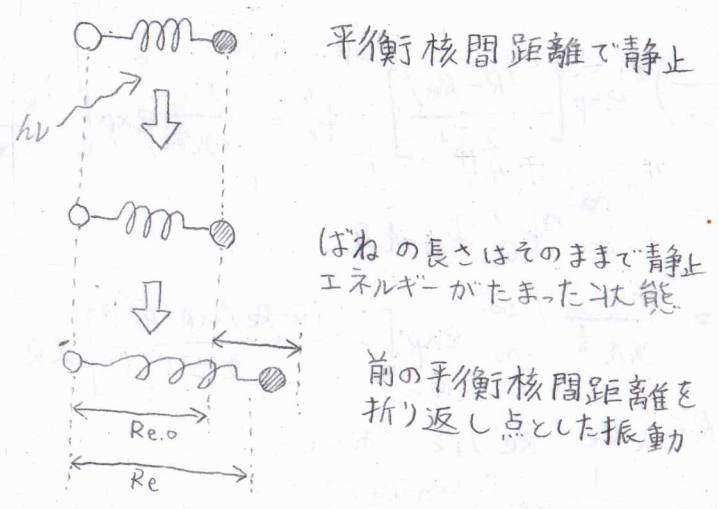 平衡核間距離で静止
hν
ばねの長さはそのままで静止
エネルギーがたまった状態
前の平衡核間距離を
折り返し点とした振動
Re.0
Re